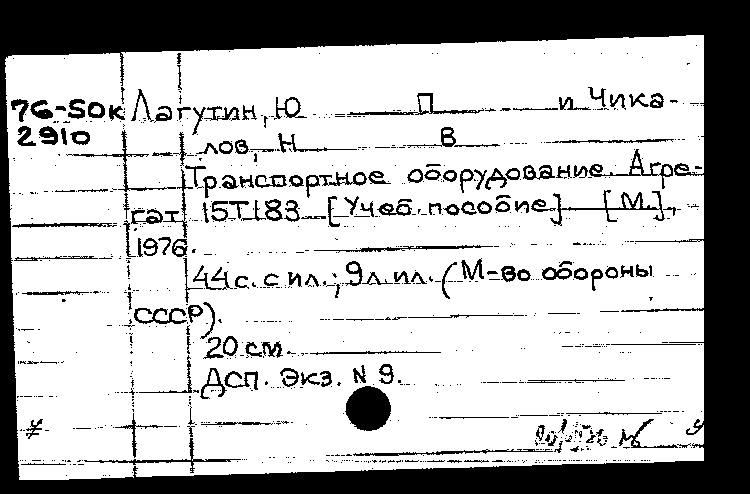 76-SOK Лагутин, Ю П и Чика-
2910 лов, Н В
Транспортное оборудование. Агре-
гат 15Т183 [Учеб. пособие] [М.],
1976.
44 с. с ил.; 9 л. ил. (М-во обороны
СССР).
20 см.
ДСП. Экз. N 9.